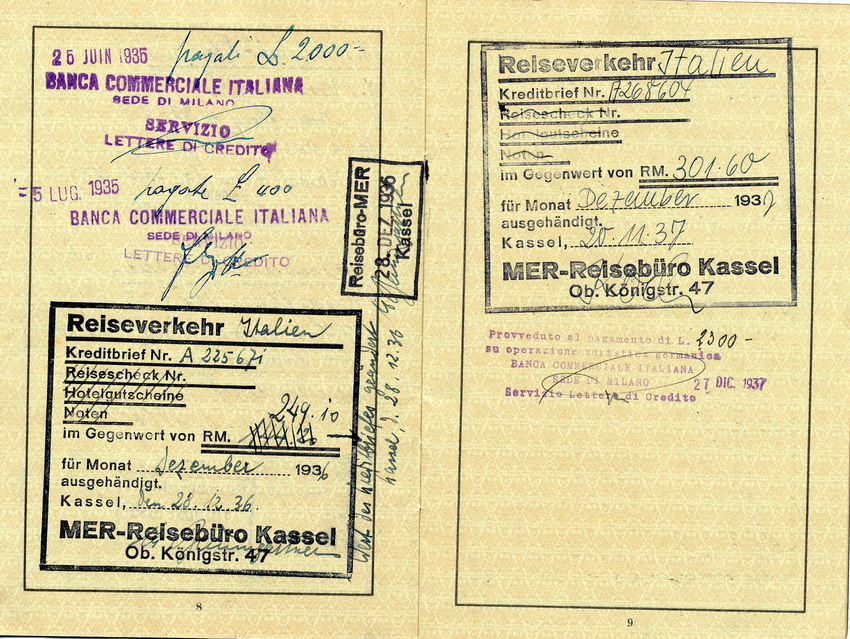 25 JUIN 1935 pagati L. 2000-
BANCA COMMERCIALE ITALIANA
SEDE DI MILANO
SERVIZIO
LETTERE DI CREDITO
5 LUG. 1935 pagate £ 400
BANCA COMMERCIALE ITALIANA
SEDE DI MILANO
SERVIZIO
LETTERE DI CREDITO
Reisebüro-MER
28. DEZ. 1936
Kassel
Reiseverkehr Italien
Kreditbrief Nr. A 225671
Reisescheck Nr.
Hotelgutscheine
Noten
249.10
im Gegenwert von RM.
für Monat Dezember 1936
ausgehändigt.
Kassel, den 28.12.36.
MER-Reisebüro Kassel
Ob. Königstr. 47
Wert des Kreditbriefes geändert
Kassel, d. 28.12.36
8
Reiseverkehr Italien
Kreditbrief Nr. A268604
Reisescheck Nr.
Hotelgutscheine
Noten
im Gegenwert von RM. 301.60
für Monat Dezember 1937
ausgehändigt.
Kassel, 20.11.37
MER-Reisebüro Kassel
Ob. Königstr. 47
Provveduto al pagamento di L. 2300-
su operazione turistica germanica
BANCA COMMERCIALE ITALIANA
SEDE DI MILANO 27 DIC. 1937
Servizio Lettere di Credito
9